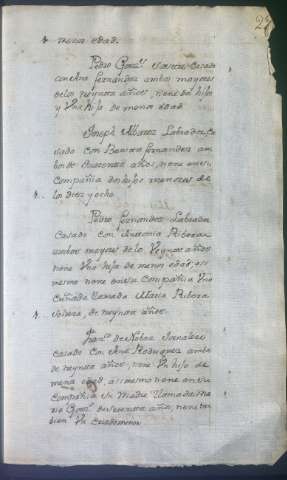 menor edad.
Pedro Gonz.z casado
con Ana fernandez ambos mayores
de los treynta años tiene Un hijo
y Una hija de menor edad
Joseph Albarez Labrador Ca
sado con fernandez am
bos de quarenta años, tiene en su
Compañia dos hijos menores de
los diez y ocho
Pedro fernandez Labrador
Casado con Antonia Ribera
ambos mayores de los treynta años
tiene Una hija de menor edad, asi
mismo tiene en su Compañia Una
Cuñada llamada Maria Ribera
soltera, de treynta años.
fran.co de Noboa Jornalero
casado con Ana Rodriguez ambos
de treynta años, tiene Un hijo de
menor edad, asimismo tiene en su
Compañia Su Madre llamada Ma
ria Gonz.z de sesenta años, tiene tam
bien Un